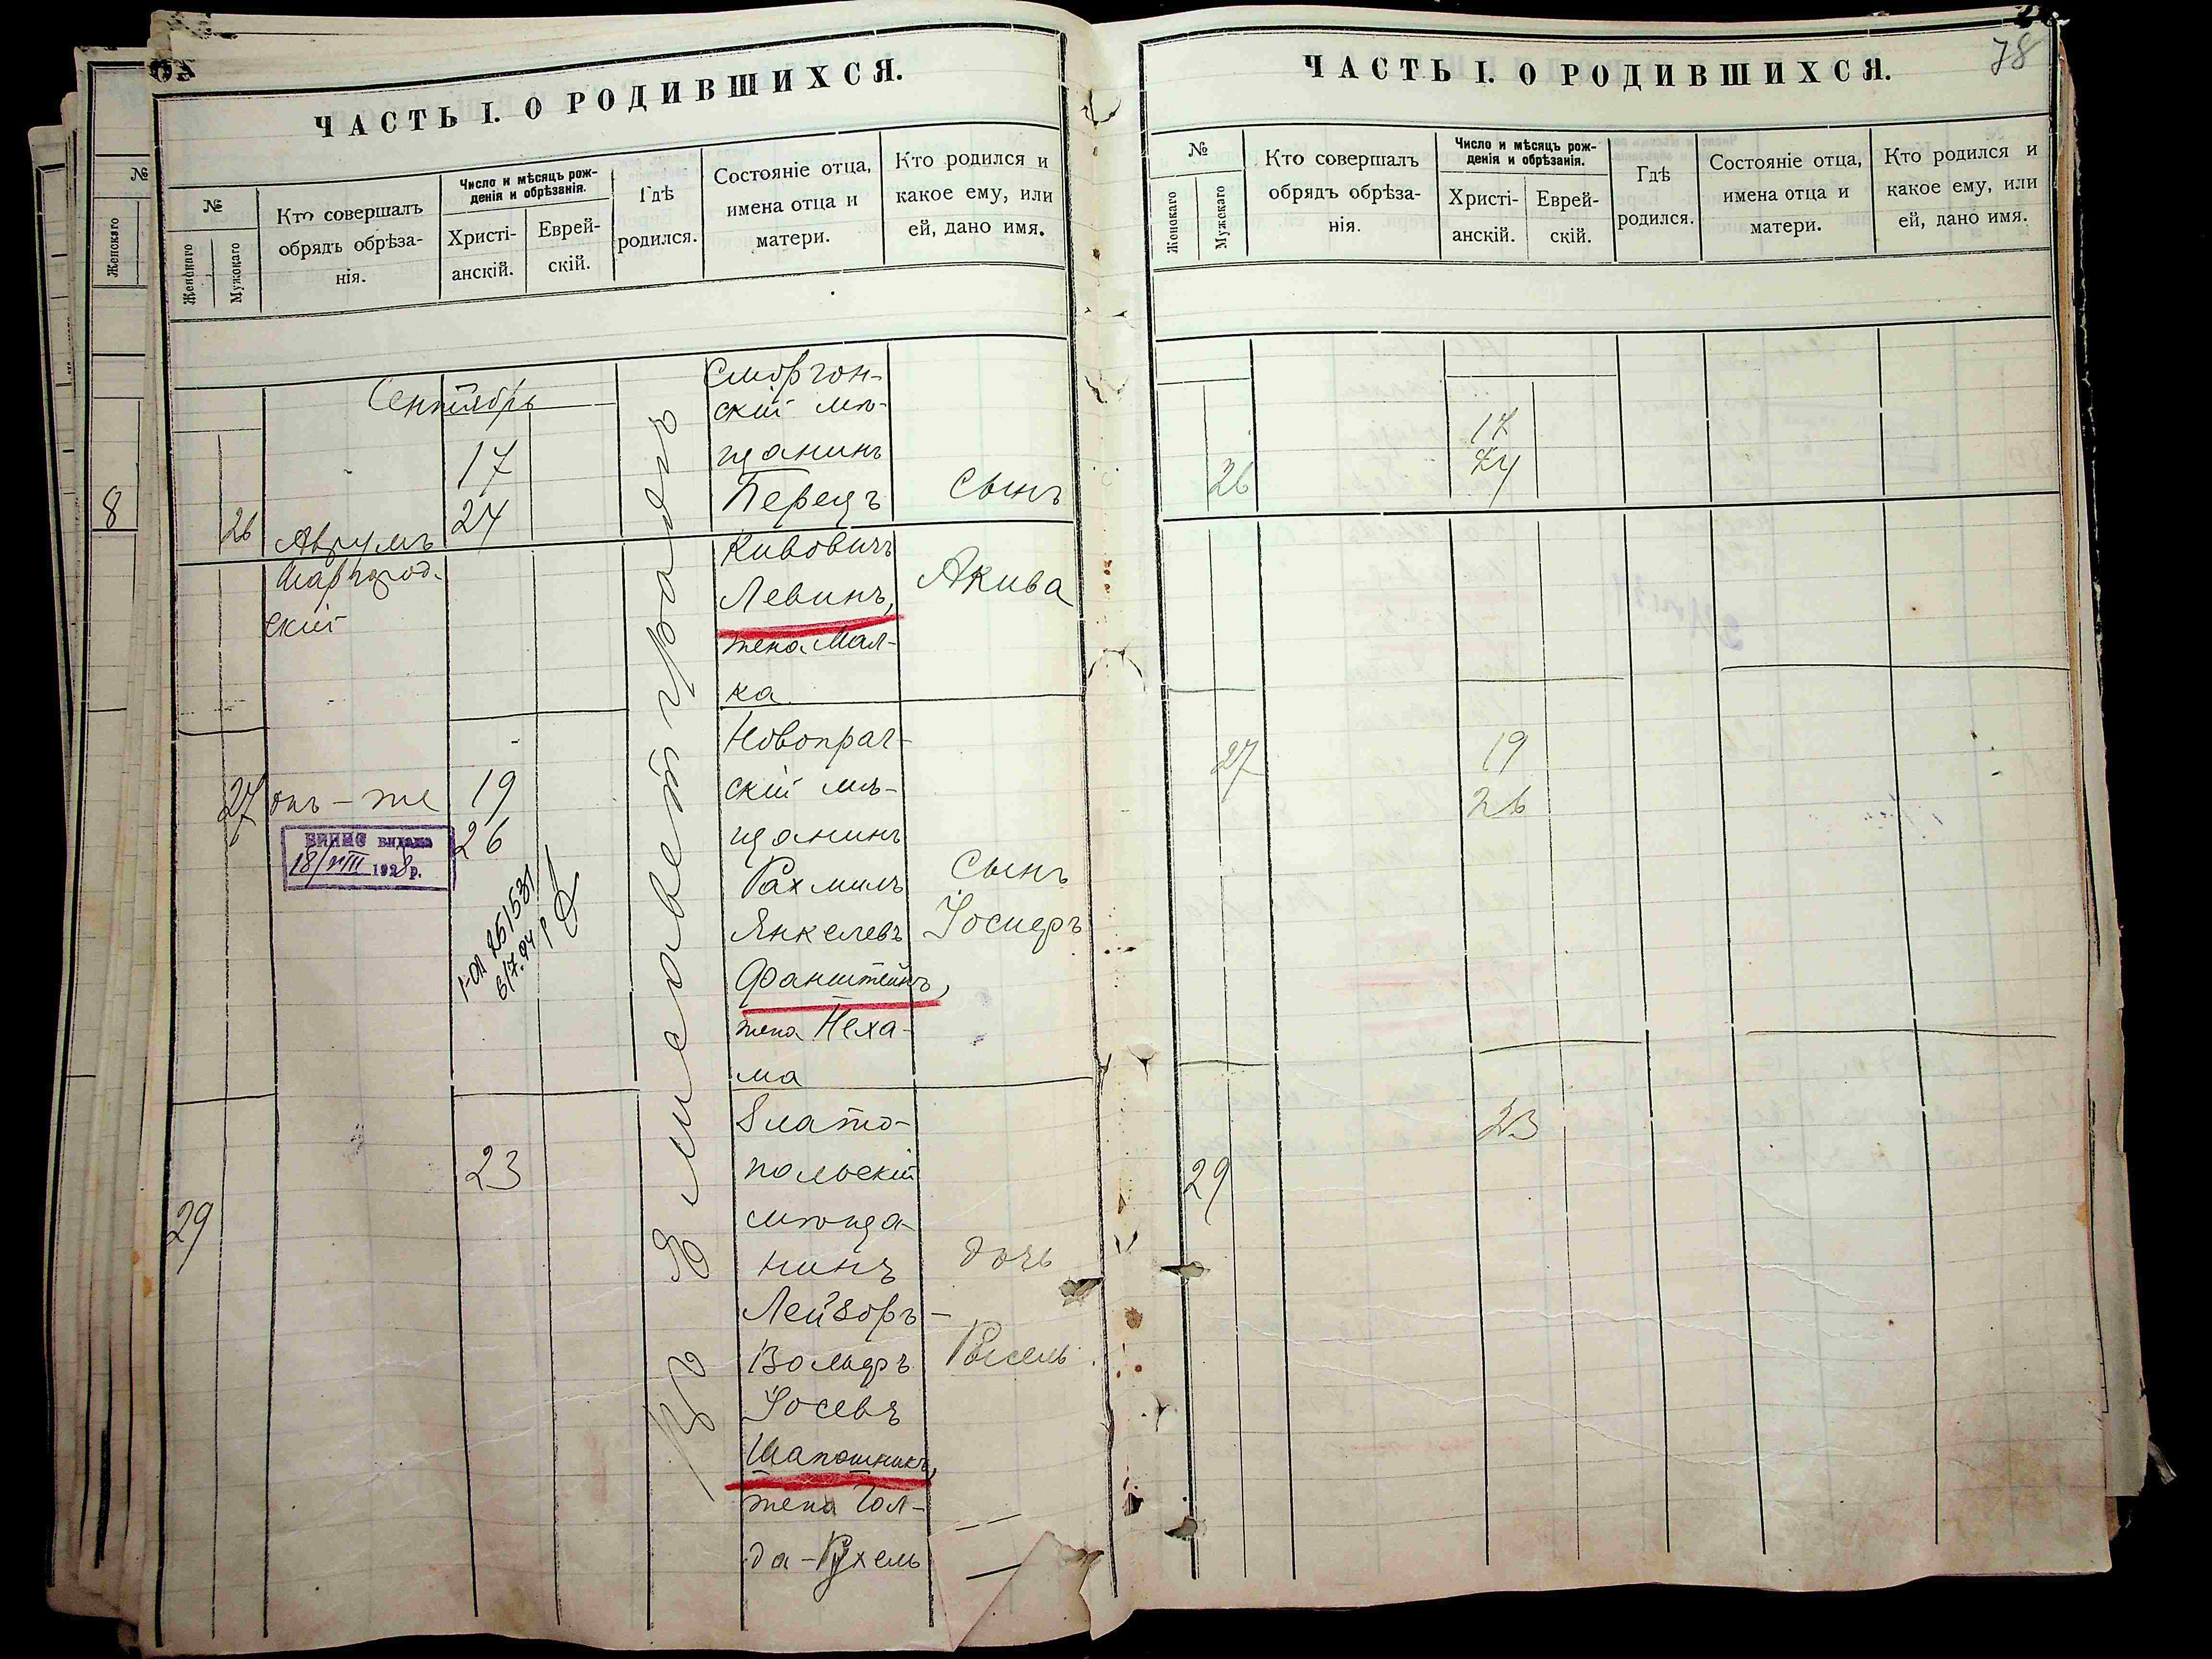 ЧАСТЬ I. О РОДИВШИХСЯ.
№
Женскаго
Мужскаго
Кто совершалъ
обрядъ обрѣза-
нія.
Число и мѣсяцъ рож-
денія и обрѣзанія.
Христі-
анскій.
Еврей-
скій.
Гдѣ
родился.
Состояніе отца,
имена отца и
матери.
Кто родился и
какое ему, или
ей, дано имя.
Сентябрь
26
Аврумъ
Шаргород-
скій
17
24
Въ Елисаветградѣ
Сморгон-
скій мѣ-
щанинъ
Перецъ
Кивовичъ
Левинъ,
жена Мал-
ка
Сынъ
Акива
27
онъ-же
19
26
видана
18/VIII 1928 р.
251531
6/7.94 р
Новопраг-
скій мѣ-
щанинъ
Рахмилъ
Янкелевъ
Фанштейнъ,
жена Неха-
ма
Сынъ
Іосифъ
29
23
Злато-
польскій
мѣща-
нинъ
Лейзоръ-
Вольфъ
Іосевъ
Шапошникъ,
жена Гол-
да-Рухель
дочь
Рысель
№
Женскаго
8
ЧАСТЬ I. О РОДИВШИХСЯ.
78
№
Женскаго
Мужскаго
Кто совершалъ
обрядъ обрѣза-
нія.
Число и мѣсяцъ рож-
денія и обрѣзанія.
Христі-
анскій.
Еврей-
скій.
Гдѣ
родился.
Состояніе отца,
имена отца и
матери.
Кто родился и
какое ему, или
ей, дано имя.
26
17
24
27
19
26
29
23